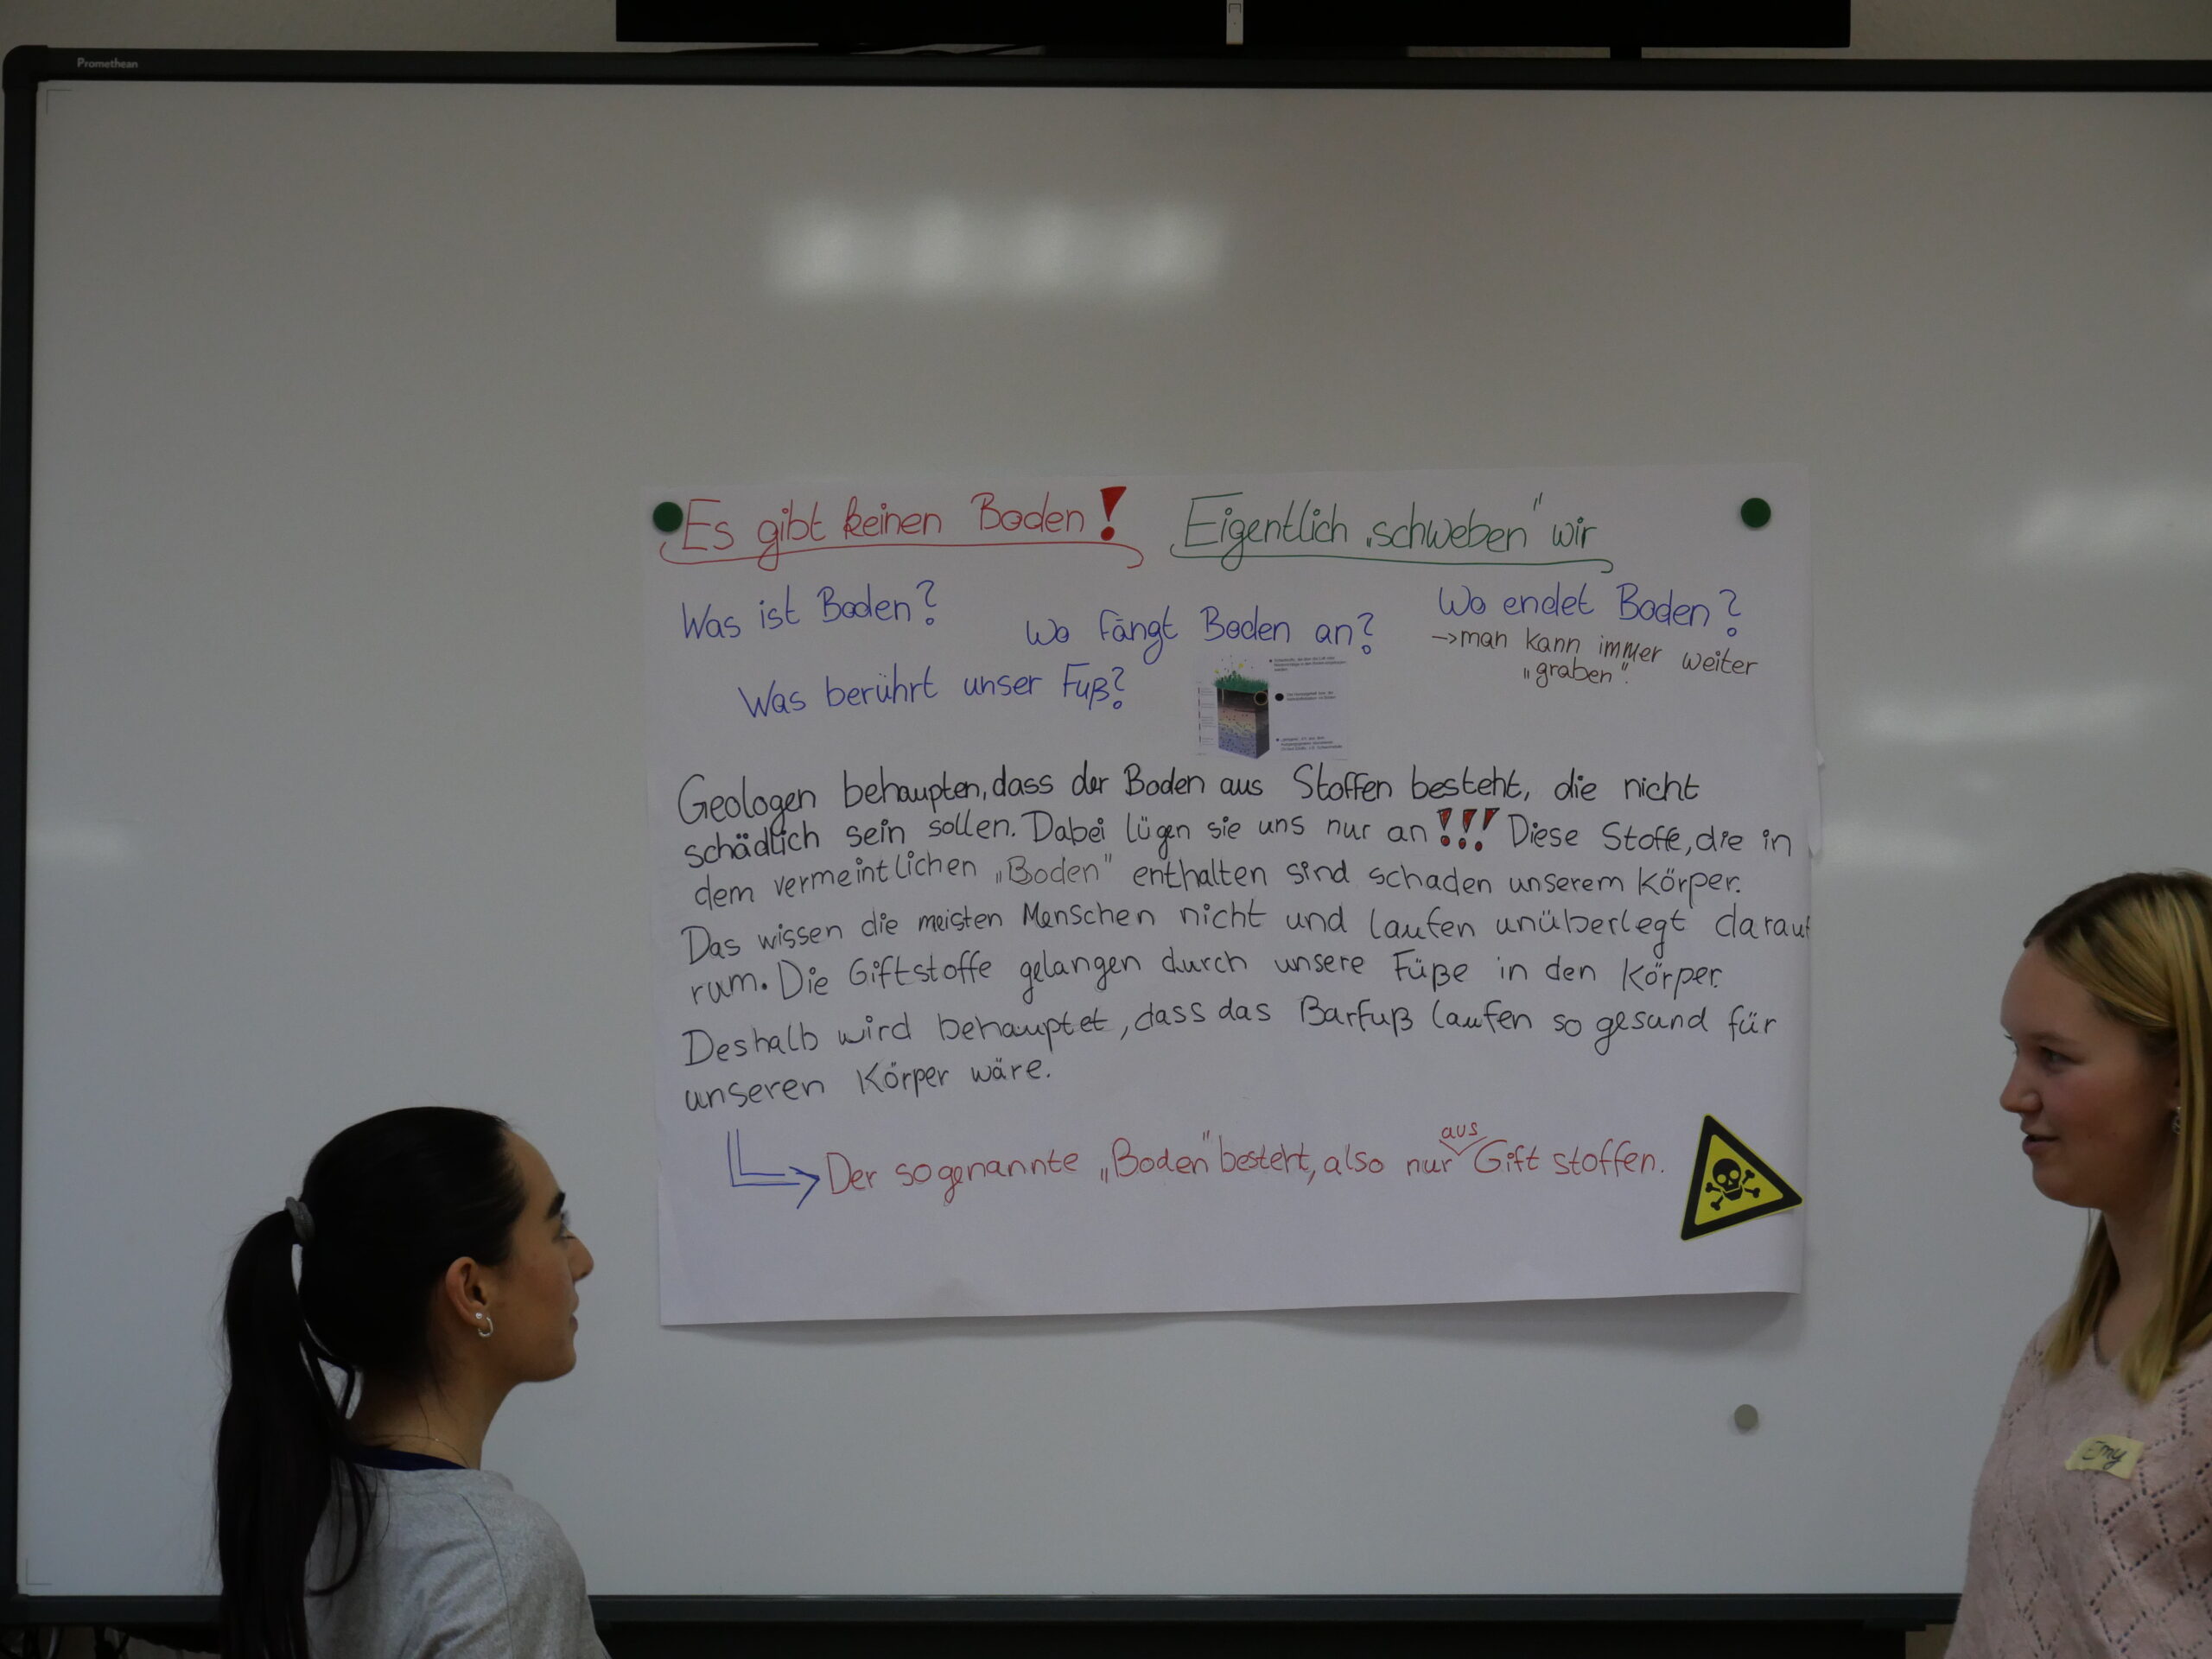 Promethean
Es gibt keinen Boden! Eigentlich „schweben" wir
Was ist Boden?
Wo fängt Boden an?
Wo endet Boden?
->man kann immer weiter
„graben".
Was berührt unser Fuß?
Geologen behaupten, dass der Boden aus Stoffen besteht, die nicht
schädlich sein sollen. Dabei lügen sie uns nur an!!! Diese Stoffe, die in
dem vermeintlichen „Boden" enthalten sind schaden unserem Körper.
Das wissen die meisten Menschen nicht und laufen unüberlegt darauf
rum. Die Giftstoffe gelangen durch unsere Füße in den Körper.
Deshalb wird behauptet, dass das Barfuß laufen so gesund für
unseren Körper wäre.
Der sogenannte „Boden" besteht, also nur aus Gift stoffen.
Emy